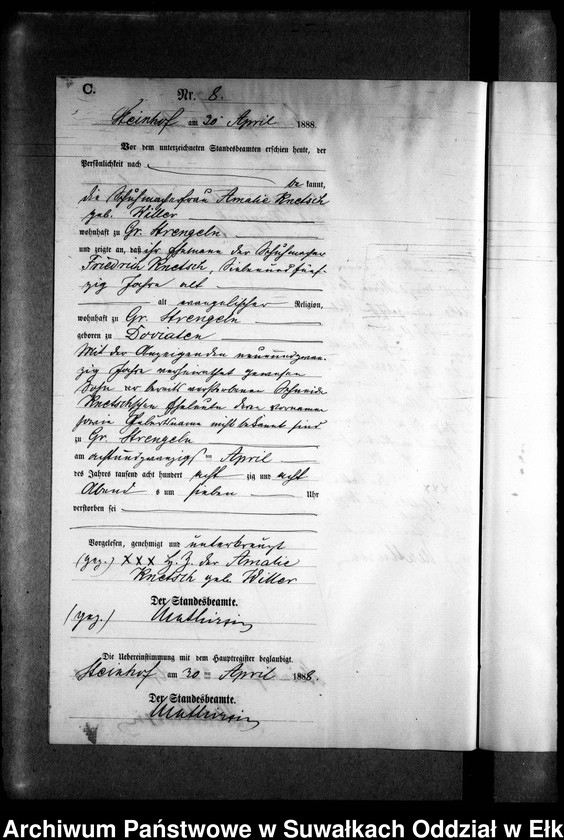 C.
Nr. 8.
Steinhof am 30 April 1888.
Vor dem unterzeichneten Standesbeamten erschien heute, der
Persönlichkeit nach
be kannt,
die Schuhmacherfrau Amalie Knetsch
geb. Willer
wohnhaft zu Gr. Strengeln
und zeigte an, daß ihr Ehemann der Schuhmacher
Friedrich Knetsch, sieben und fünf-
zig Jahre alt
alt evangelischer Religion,
wohnhaft zu Gr. Strengeln
geboren zu Doviaten
Mit der Anzeigenden neunundzwan-
zig Jahre verheirathet gewesen
Sohn er bereits verstorbenen Schneider
Knetsch'schen Eheleute deren Vornamen
sowie Geburtsname nicht bekannt sind
zu Gr. Strengeln
am achtundzwanzigs = April
des Jahres tausend acht hundert acht zig und acht
Abend s um sieben Uhr
verstorben sei
Vorgelesen, genehmigt und unterkreuzt
(gez.) XXX Hz. Z. der Amalie
Knetsch geb. Willer
Der Standesbeamte.
(gez.)
Die Uebereinstimmung mit dem Hauptregister beglaubigt.
Steinhof am 30 April 1888.
Der Standesbeamte.
Archiwum Państwowe w Suwałkach Oddział w Ełk